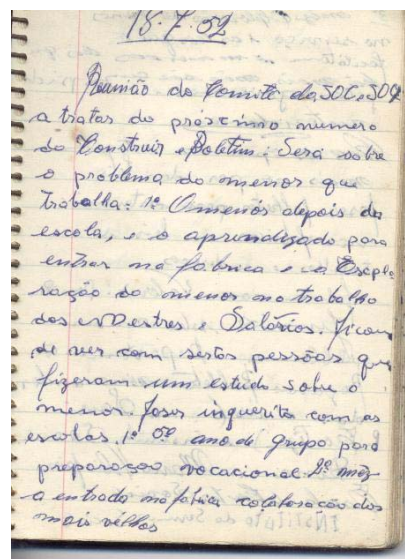 18.7.52
Reunião do Comitê da JOC e JOCF
a tratar do prosximo numero
do Construir e Boletim. Será sobre
o problema do menor que
trabalha: 1º O menor depois da
escola, e o aprendizado para
entrar na fabrica e a Explo-
ração do menor no trabalho
dos Mestres e Salários. Ficou
de ver com sertas pessõas que
fizeram um estudo sobre o
menor. Faser inquerito com as
escolas. 1º ano de grupo para
preparação vocacional. 2º
a entrada na fabrica colaboração dos
mais velhos